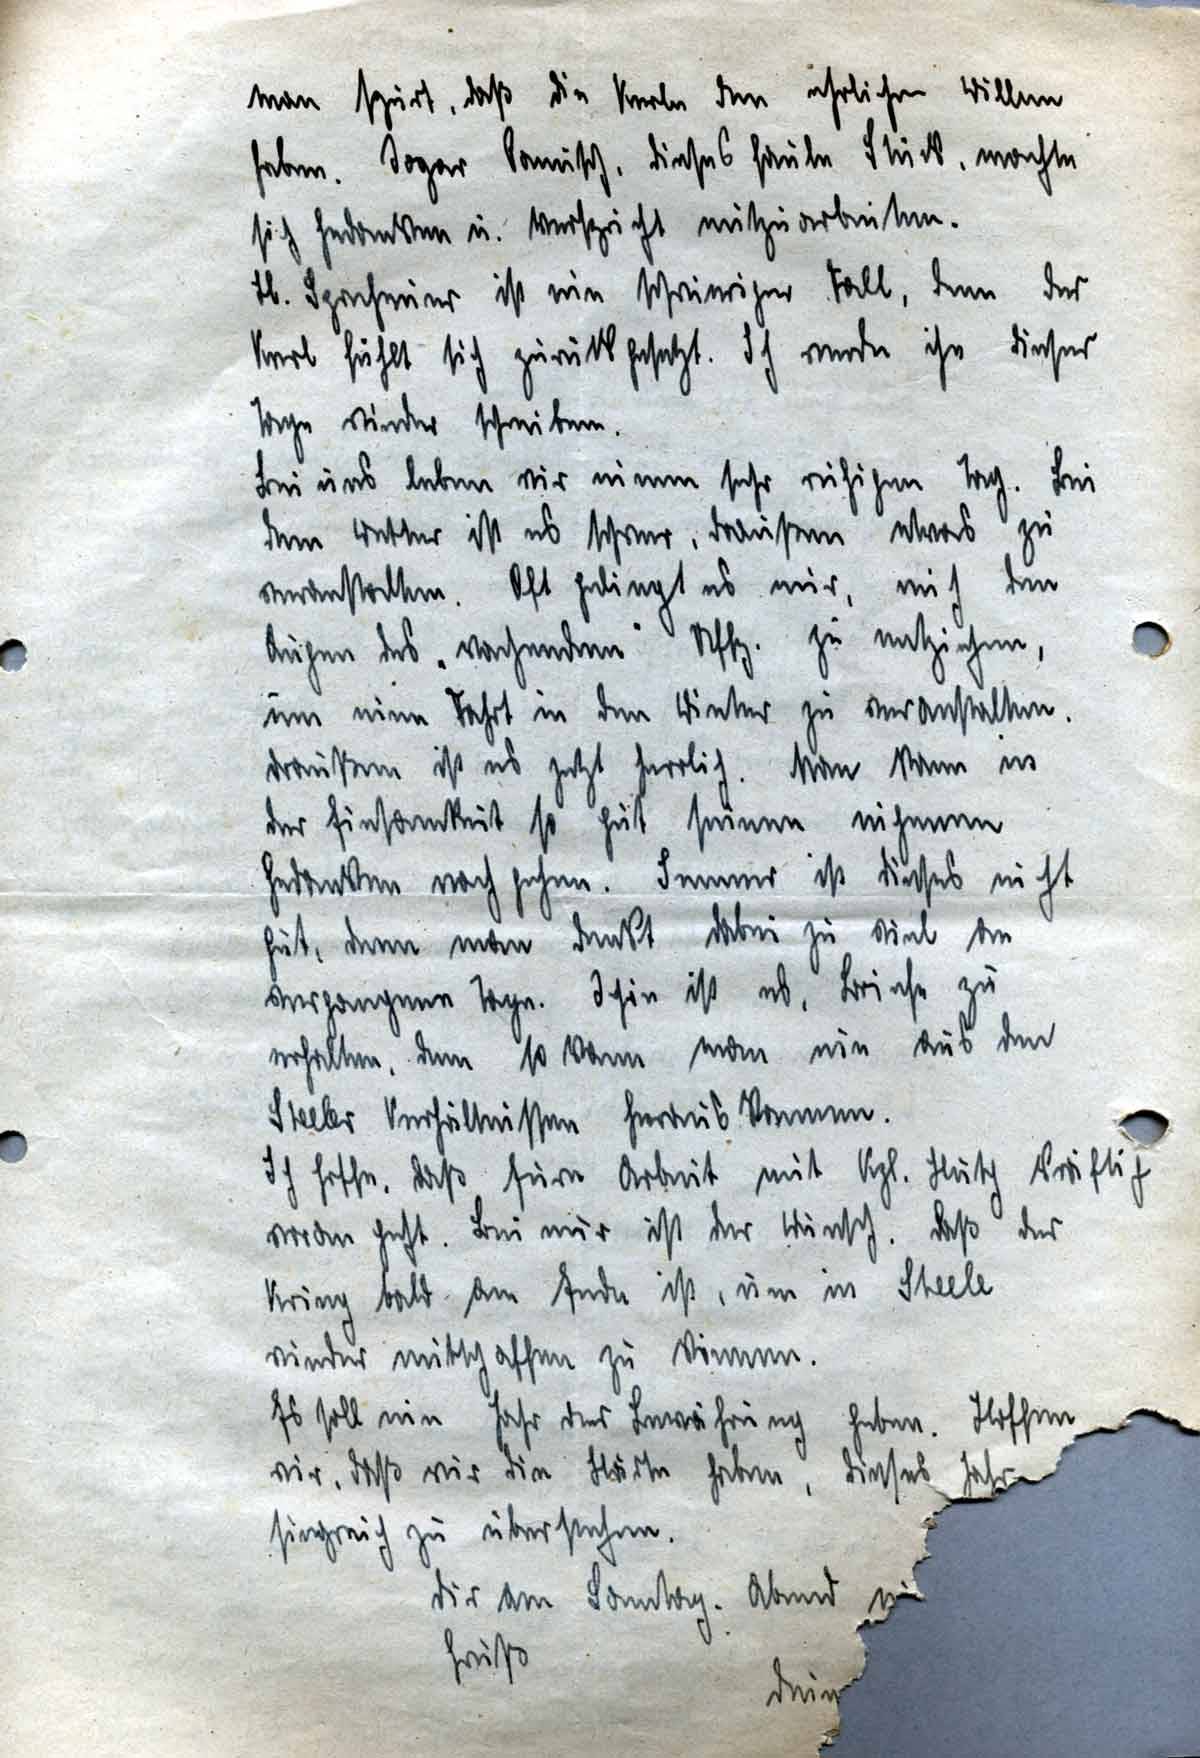 man spürt, daß die Kerle den ehrlichen Willen
haben. Sogar, dieses faule Stück, machte
sich Gedanken u. verspricht mitzuarbeiten.
ist ein schwieriger Fall, denn der
Kerl fühlt sich zurückgesetzt. Ich werde ihn dieser
Tage wieder schreiben.
Bei uns leben wir einen sehr ruhigen Tag. Bei
dem Wetter ist es schwer, draußen etwas zu
veranstalten. Oft gelingt es mir, mich den
Augen des „wachenden“ Uffz. zu entziehen,
um eine Fahrt in den Winter zu veranstalten.
draußen ist es jetzt herrlich. Man kann in
der Einsamkeit so gut seinen eigenen
Gedanken nach gehen. Immer ist dieses nicht
gut, denn man denkt dabei zu viel an
vergangene Tage. Schön ist es, Briefe zu
erhalten, denn so kann man nie aus den
Steeler Verhältnissen heraus kommen.
Ich hoffe, daß Eure Arbeit mit kräftig
voran geht. Bei mir ist der Wunsch, daß der
Krieg bald am Ende ist, um in Steele
wieder mitschaffen zu können.
Es soll ein Jahr der Bewährung geben. Hoffen
wir, daß wir die Stärke haben, dieses Jahr
siegreich zu überstehen.
Dir am Sonntag. Abend
Gruß
Dein